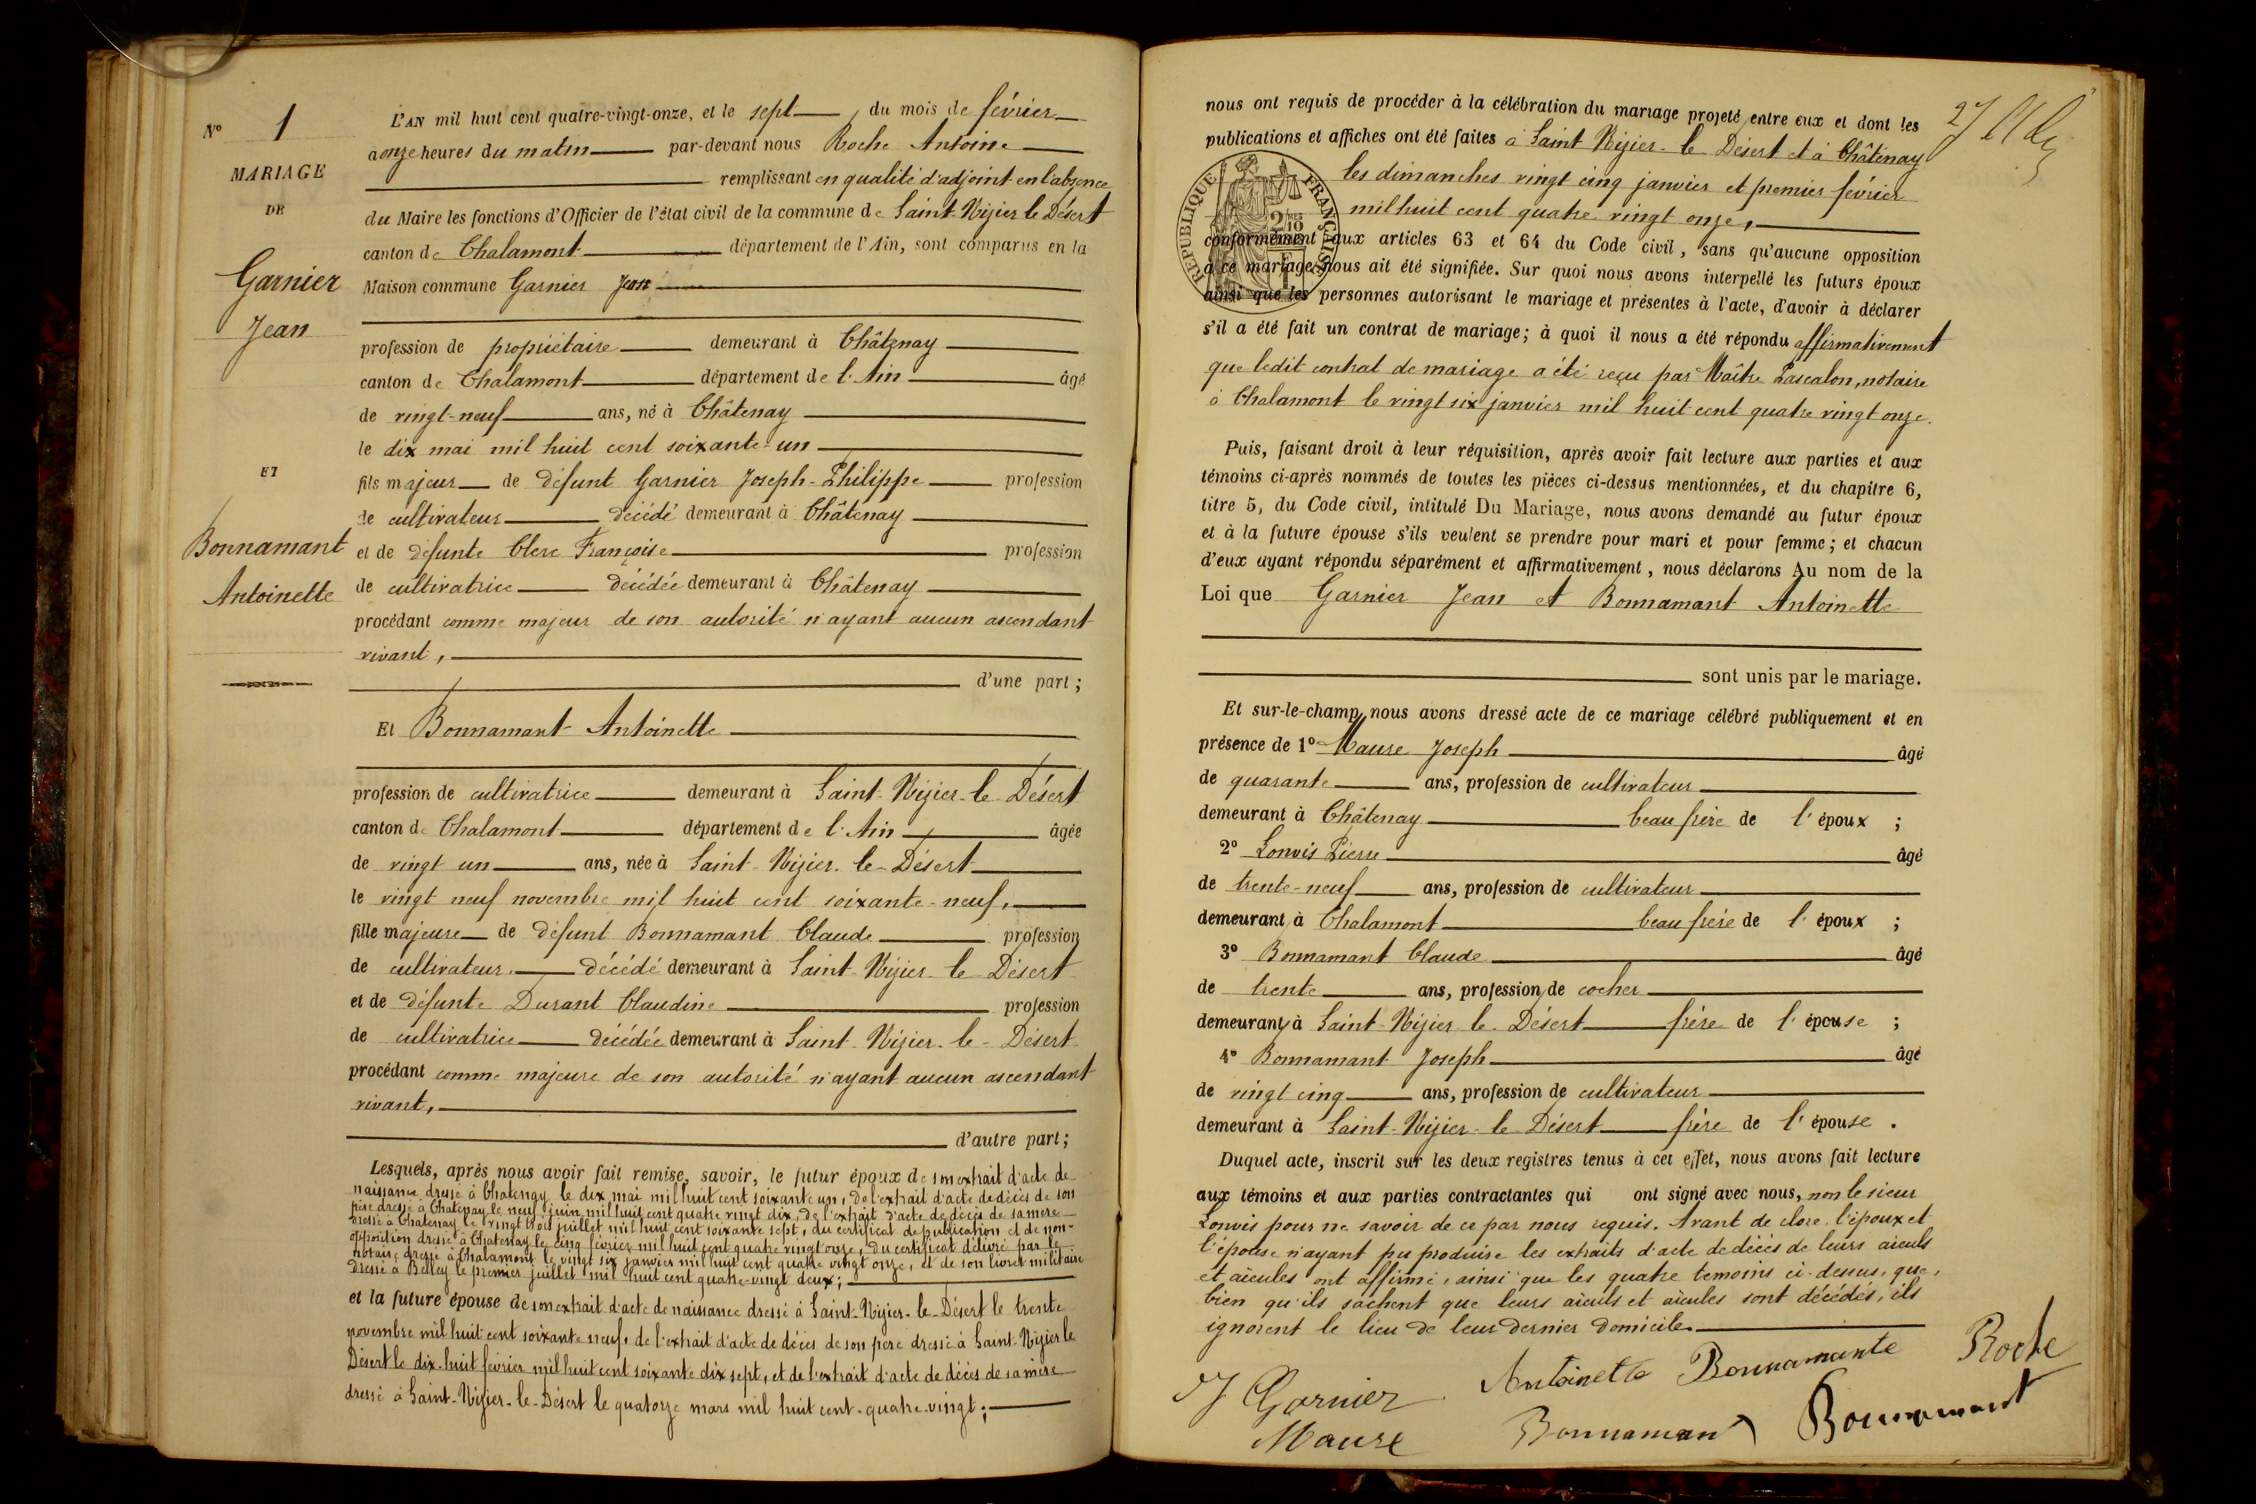 N° 1
MARIAGE
DE
Garnier
Jean
ET
Bonnamant
Antoinette
L'AN mil huit cent quatre-vingt-onze, et le sept, du mois de février
à onze heures du matin par-devant nous Roche Antoine
remplissant en qualité d'adjoint en l'absence
du Maire les fonctions d'Officier de l'état civil de la commune de Saint-Nizier le Désert
canton de Chalamont département de l'Ain, sont comparus en la
Maison commune Garnier Jean
profession de propriétaire demeurant à Châtenay
canton de Chalamont département de l'Ain âgé
de vingt-neuf ans, né à Châtenay
le dix mai mil huit cent soixante-un
fils majeur de défunt Garnier Joseph-Philippe profession
de cultivateur décédé demeurant à Châtenay
et de défunte Clerc Françoise profession
de cultivatrice décédée demeurant à Châtenay
procédant comme majeur de son autorité n'ayant aucun ascendant
vivant,
d'une part;
Et Bonnamant Antoinette
profession de cultivatrice demeurant à Saint-Nizier-le-Désert
canton de Chalamont département de l'Ain âgée
de vingt un ans, née à Saint-Nizier-le-Désert
le vingt neuf novembre mil huit cent soixante-neuf,
fille majeure de défunt Bonnamant Claude profession
de cultivateur, décédé demeurant à Saint-Nizier-le-Désert
et de défunte Durant Claudine profession
de cultivatrice décédée demeurant à Saint-Nizier-le-Désert
procédant comme majeure de son autorité n'ayant aucun ascendant
vivant,
d'autre part;
Lesquels, après nous avoir fait remise, savoir, le futur époux de son extrait d'acte de
naissance dressé à Chatenay le dix mai mil huit cent soixante un, de l'extrait d'acte de décès de son
père dressé à Chatenay le neuf juin mil huit cent quatre vingt dix, de l'extrait d'acte de décès de sa mère
dressé à Chatenay le vingt trois juillet mil huit cent soixante sept, du certificat de publication et de non-
opposition dressé à Chatenay le cinq février mil huit cent quatre vingt onze, du certificat délivré par le
notaire dressé à Chalamont le vingt six janvier mil huit cent quatre vingt onze, et de son livret militaire
dressé à Belley le premier juillet mil huit cent quatre-vingt deux;
et la future épouse de son extrait d'acte de naissance dressé à Saint-Nizier-le-Désert le trente
novembre mil huit cent soixante neuf, de l'extrait d'acte de décès de son père dressé à Saint-Nizier le
Désert le dix-huit février mil huit cent soixante dix sept, et de l'extrait d'acte de décès de sa mère
dressé à Saint-Nizier-le-Désert le quatorze mars mil huit cent-quatre-vingt;
nous ont requis de procéder à la célébration du mariage projeté entre eux et dont les
publications et affiches ont été faites à Saint Nizier-le Désert et à Châtenay
les dimanches vingt cinq janvier et premier février
mil huit cent quatre vingt onze,
RÉPUBLIQUE FRANÇAISE
conformément aux articles 63 et 64 du Code civil, sans qu'aucune opposition
à ce mariage nous ait été signifiée. Sur quoi nous avons interpellé les futurs époux
ainsi que les personnes autorisant le mariage et présentes à l'acte, d'avoir à déclarer
s'il a été fait un contrat de mariage; à quoi il nous a été répondu affirmativement
que ledit contrat de mariage a été reçu par Maître Lascalon, notaire
à Chalamont le vingt six janvier mil huit cent quatre vingt onze.
Puis, faisant droit à leur réquisition, après avoir fait lecture aux parties et aux
témoins ci-après nommés de toutes les pièces ci-dessus mentionnées, et du chapitre 6,
titre 5, du Code civil, intitulé Du Mariage, nous avons demandé au futur époux
et à la future épouse s'ils veulent se prendre pour mari et pour femme; et chacun
d'eux ayant répondu séparément et affirmativement, nous déclarons Au nom de la
Loi que Garnier Jean et Bonnamant Antoinette
sont unis par le mariage.
Et sur-le-champ nous avons dressé acte de ce mariage célébré publiquement et en
présence de 1° Maure Joseph âgé
de quarante ans, profession de cultivateur
demeurant à Châtenay beau frère de l'époux ;
2° Lonvis Pierre âgé
de trente-neuf ans, profession de cultivateur
demeurant à Chalamont beau frère de l'époux ;
3° Bonnamant Claude âgé
de trente ans, profession de cocher
demeurant à Saint-Nizier le Désert frère de l'épouse ;
4° Bonnamant Joseph âgé
de vingt cinq ans, profession de cultivateur
demeurant à Saint-Nizier-le Désert frère de l'épouse .
Duquel acte, inscrit sur les deux registres tenus à cet effet, nous avons fait lecture
aux témoins et aux parties contractantes qui ont signé avec nous, non le sieur
Lonvis pour ne savoir de ce par nous requis. Avant de clore l'époux et
l'épouse n'ayant pu produire les extraits d'acte de décès de leurs aïeuls
et aïeules ont affirmé, ainsi que les quatre temoins ci-dessus, que,
bien qu'ils sachent que leurs aïeuls et aïeules sont décédés, ils
ignorent le lieu de leur dernier domicile.
J Garnier Antoinette Bonnamante Roche
Maure Bonnamant Bonnamant